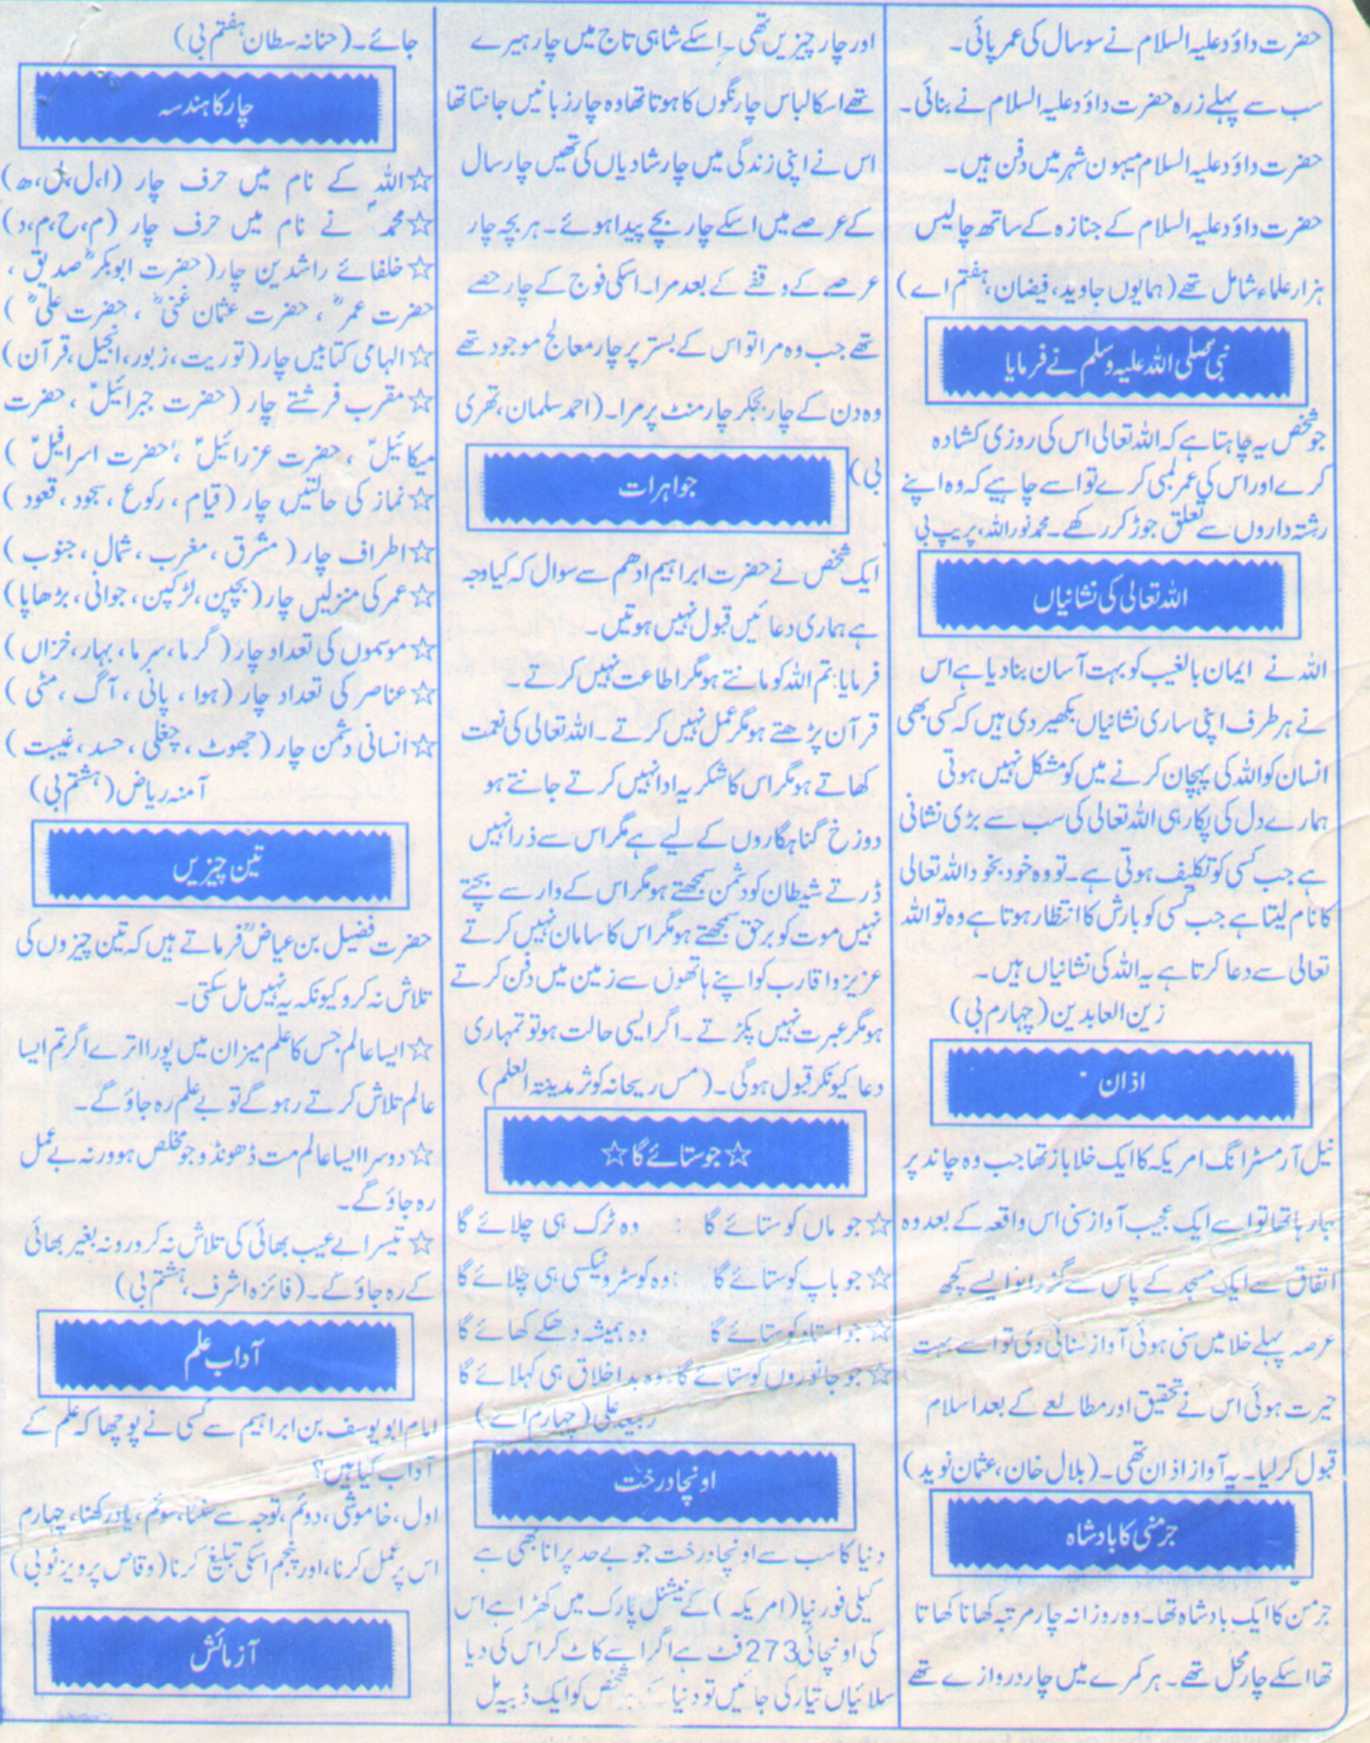 حضرت داؤد علیہ السلام نے سو سال کی عمر پائی۔
سب سے پہلے زرہ حضرت داؤد علیہ السلام نے بنائی۔
حضرت داؤد علیہ السلام میہون شہر میں دفن ہیں۔
حضرت داؤد علیہ السلام کے جنازہ کے ساتھ چالیس
ہزار علماء شامل تھے (ہمایوں جاوید، فیضان، ہفتم اے)
نبی صلی اللہ علیہ وسلم نے فرمایا
جو شخص یہ چاہتا ہے کہ اللہ تعالی اس کی روزی کشادہ
کرے اور اس کی عمر لمبی کرے تو اسے چاہیے کہ وہ اپنے
رشتہ داروں سے تعلق جوڑ کر رکھے۔ محمد نور اللہ، پریپ بی
اللہ تعالی کی نشانیاں
اللہ نے ایمان بالغیب کو بہت آسان بنا دیا ہے اس
نے ہر طرف اپنی ساری نشانیاں بکھیر دی ہیں کہ کسی بھی
انسان کو اللہ کی پہچان کرنے میں کو مشکل نہیں ہوتی
ہمارے دل کی پکار ہی اللہ تعالی کی سب سے بڑی نشانی
ہے جب کسی کو تکلیف ہوتی ہے۔ تو وہ خود بخود اللہ تعالی
کا نام لیتا ہے جب کسی کو بارش کا انتظار ہوتا ہے وہ تو اللہ
تعالی سے دعا کرتا ہے یہ اللہ کی نشانیاں ہیں۔
زین العابدین (چہارم بی)
اذان
نیل آرمسٹرانگ امریکہ کا ایک خلا باز تھا جب وہ چاند پر
جا رہا تھا تو اسے ایک عجیب آواز سنی اس واقعہ کے بعد وہ
اتفاق سے ایک مسجد کے پاس سے گزرا تو اسے کچھ
عرصہ پہلے خلا میں سنی ہوئی آواز سنائی دی تو اسے بہت
حیرت ہوئی اس نے تحقیق اور مطالعے کے بعد اسلام
قبول کر لیا۔ یہ آواز اذان تھی۔ (بلال خان، عثمان نوید)
جرمنی کا بادشاہ
جرمن کا ایک بادشاہ تھا۔ وہ روزانہ چار مرتبہ کھانا کھاتا
تھا اسکے چار محل تھے۔ ہر کمرے میں چار دروازے تھے
اور چار چیزیں تھی۔ اسکے شاہی تاج میں چار ہیرے
تھے اسکا لباس چار رنگوں کا ہوتا تھا وہ چار زبانیں جانتا تھا
اس نے اپنی زندگی میں چار شادیاں کی تھیں چار سال
کے عرصے میں اسکے چار بچے پیدا ہوئے۔ ہر بچہ چار
عرصے کے وقفے کے بعد مرا۔ اسکی فوج کے چار حصے
تھے جب وہ مرا تو اس کے بستر پر چار معالج موجود تھے
وہ دن کے چار بجکر چار منٹ پر مرا۔ (احمد سلمان، تھری
بی)
جواہرات
ایک شخص نے حضرت ابراہیم ادھم سے سوال کہ کیا وجہ
ہے ہماری دعائیں قبول نہیں ہوتیں۔
فرمایا: تم اللہ کو مانتے ہو مگر اطاعت نہیں کرتے۔
قرآن پڑھتے ہو مگر عمل نہیں کرتے۔ اللہ تعالی کی نعمت
کھاتے ہو مگر اس کا شکریہ ادا نہیں کرتے جانتے ہو
دوزخ گناہگاروں کے لیے ہے مگر اس سے ذرا نہیں
ڈرتے شیطان کو دشمن سمجھتے ہو مگر اس کے وار سے بچتے
نہیں موت کو برحق سمجھتے ہو مگر اس کا سامان نہیں کرتے
عزیز و اقارب کو اپنے ہاتھوں سے زمین میں دفن کرتے
ہو مگر عبرت نہیں پکڑتے۔ اگر ایسی حالت ہو تو تمہاری
دعا کیونکر قبول ہو گی۔ (مس ریحانہ کوثر مدینتہ العلم)
☆ جو ستائے گا ☆
☆ جو ماں کو ستائے گا : وہ ٹرک ہی چلائے گا
☆ جو باپ کو ستائے گا : وہ کوسٹر و ٹیکسی ہی چلائے گا
☆ جو استاد کو ستائے گا وہ ہمیشہ دھکے کھائے گا
☆ جو جانوروں کو ستائے گا: وہ بداخلاق ہی کہلائے گا
ربیعہ علی (چہارم اے)
اونچا درخت
دنیا کا سب سے اونچا درخت جو بے حد پرانا بھی ہے
کیلی فورنیا (امریکہ) کے نیشنل پارک میں کھڑا ہے اس
کی اونچائی 273 فٹ ہے اگر اسے کاٹ کر اس کی دیا
سلائیاں تیار کی جائیں تو دنیا کے شخص کو ایک ڈبیہ مل
جائے۔ (حنانہ سطان ہفتم بی)
چار کا ہندسہ
☆ اللہ کے نام میں حرف چار (ا، ل، ل، ھ)
☆ محمدؐ نے نام میں حرف چار (م، ح، م، د)
☆ خلفائے راشدین چار (حضرت ابوبکرؓ صدیق،
حضرت عمرؓ، حضرت عثمان غنیؓ، حضرت علیؓ)
☆ الہامی کتابیں چار (توریت، زبور، انجیل، قرآن)
☆ مقرب فرشتے چار (حضرت جبرائیلؑ، حضرت
میکائیلؑ، حضرت عزرائیلؑ، حضرت اسرافیلؑ)
☆ نماز کی حالتیں چار (قیام، رکوع، سجود، قعود)
☆ اطراف چار (مشرق، مغرب، شمال، جنوب)
☆ عمر کی منزلیں چار (بچپن، لڑکپن، جوانی، بڑھاپا)
☆ موسموں کی تعداد چار (گرما، سرما، بہار، خزاں)
☆ عناصر کی تعداد چار (ہوا، پانی، آگ، مٹی)
☆ انسانی دشمن چار (جھوٹ، چغلی، حسد، غیبت)
آمنہ ریاض (ہشتم بی)
تین چیزیں
حضرت فضیل بن عیاضؒ فرماتے ہیں کہ تین چیزوں کی
تلاش نہ کرو کیونکہ یہ نہیں مل سکتی۔
☆ ایسا عالم جس کا علم میزان میں پورا اترے اگر تم ایسا
عالم تلاش کرتے رہو گے تو بے علم رہ جاؤ گے۔
☆ دوسرا ایسا عالم مت ڈھونڈو جو مخلص ہو ورنہ بے عمل
رہ جاؤ گے۔
☆ تیسرا بے عیب بھائی کی تلاش نہ کرو ورنہ بغیر بھائی
کے رہ جاؤ گے۔ (فائزہ اشرف، ہشتم بی)
آداب علم
امام ابو یوسف بن ابراہیم سے کسی نے پوچھا کہ علم کے
آداب کیا ہیں؟
اول، خاموشی، دوئم، توجہ سے سننا، سوئم، یاد رکھنا، چہارم
اس پر عمل کرنا، اور پنجم اسکی تبلیغ کرنا (وقاص پرویز نو بی)
آزمائش